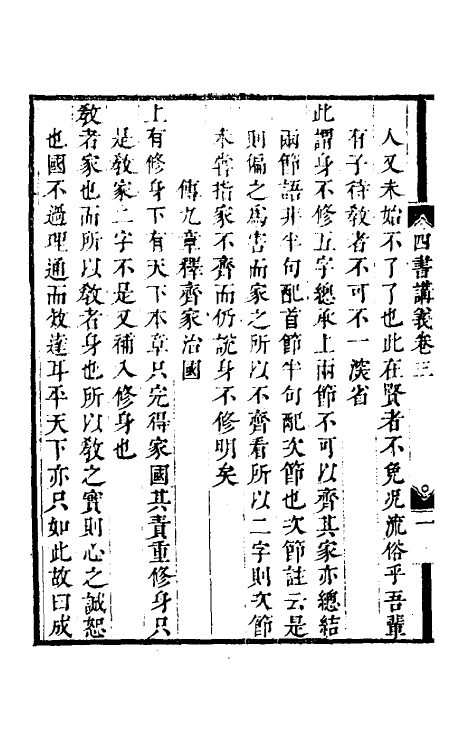 四書講義卷三
一
人又未始不了了也此在賢者不免况流俗乎吾輩
有子待教者不可不一深省
此謂身不修五字總承上兩節不可以齊其家亦總結
兩節語非半句配首節半句配次節也次節註云是
則偏之爲害而家之所以不齊看所以二字則次節
未嘗指家不齊而仍說身不修明矣
傳九章釋齊家治國
上有修身下有天下本章只完得家國其責重修身只
是教家二字不是又補入修身也
教者家也而所以教者身也所以教之實則心之誠恕
也國不過理通而效達耳平天下亦只如此故曰成